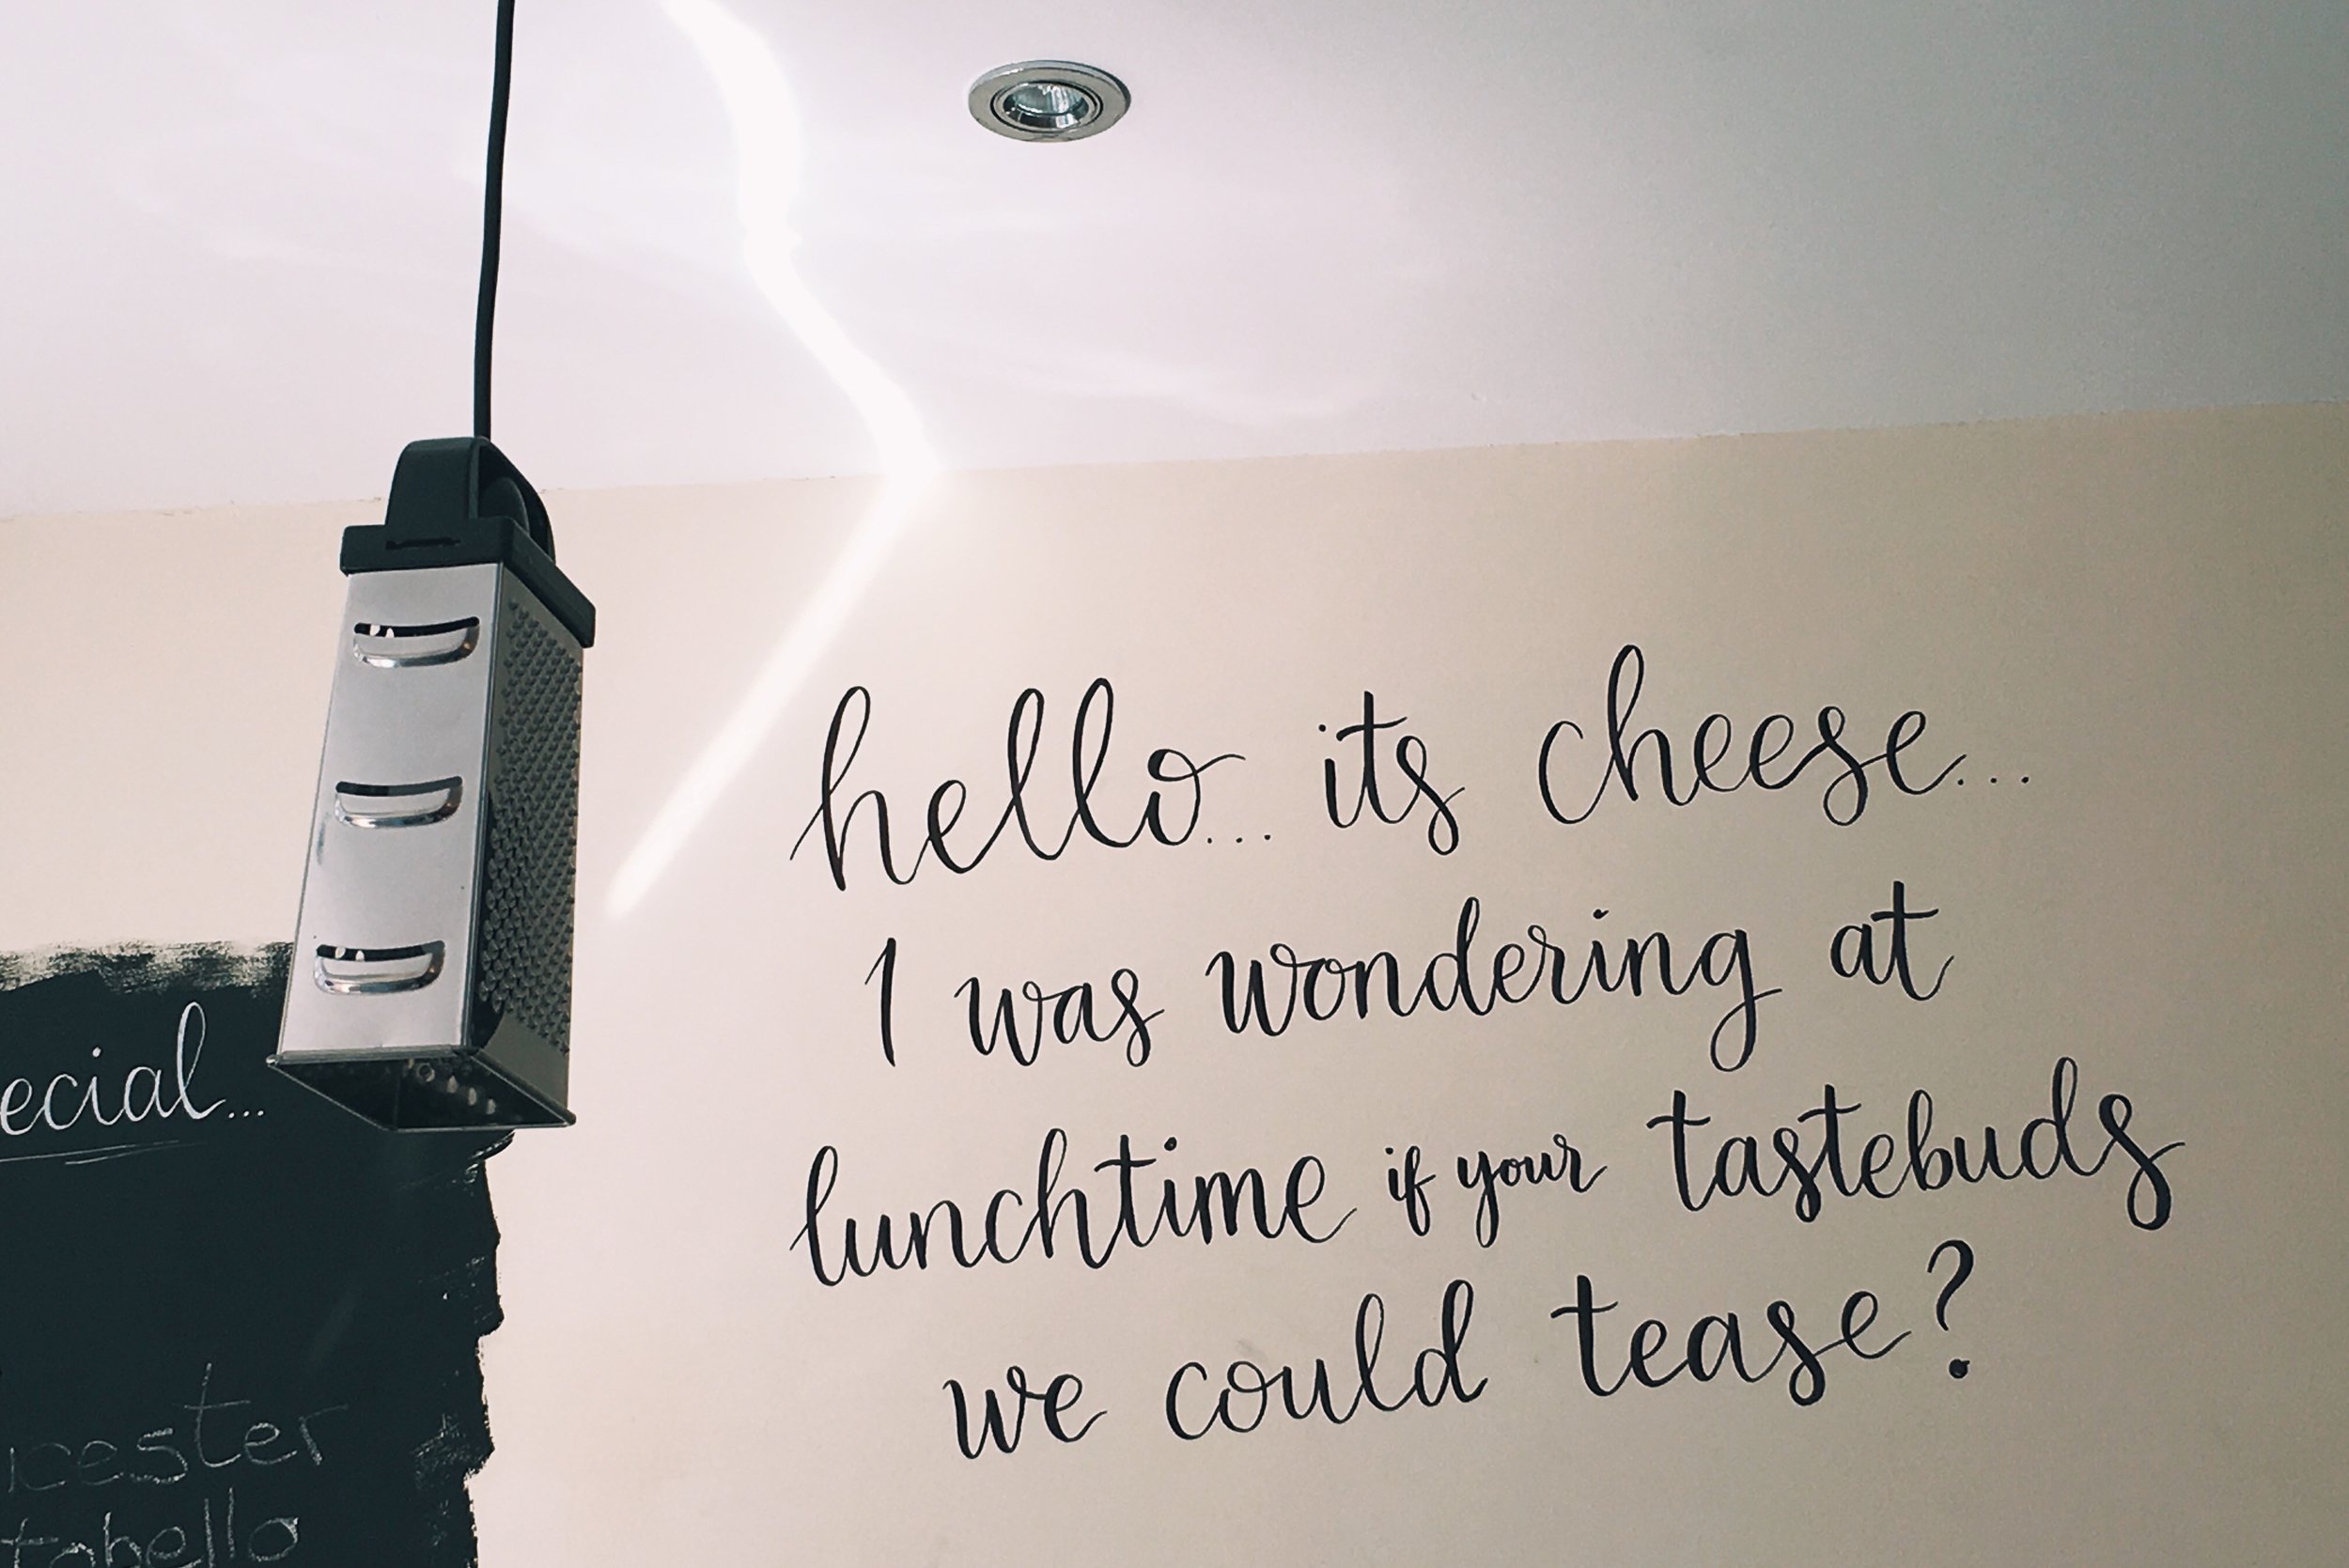 hello... its cheese...
I was wondering at
lunchtime if your tastebuds
we could tease?
ecial...
icester
tobello